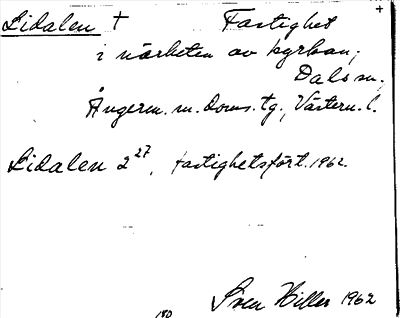 Lidalen † Fastighet +
i närheten av kyrkan;
Dals sn;
Ångerm. m. Doms. tg., Västern. l.
Lidalen 2²⁷, fastighetsfört. 1962.
Sven Hiller 1962
180